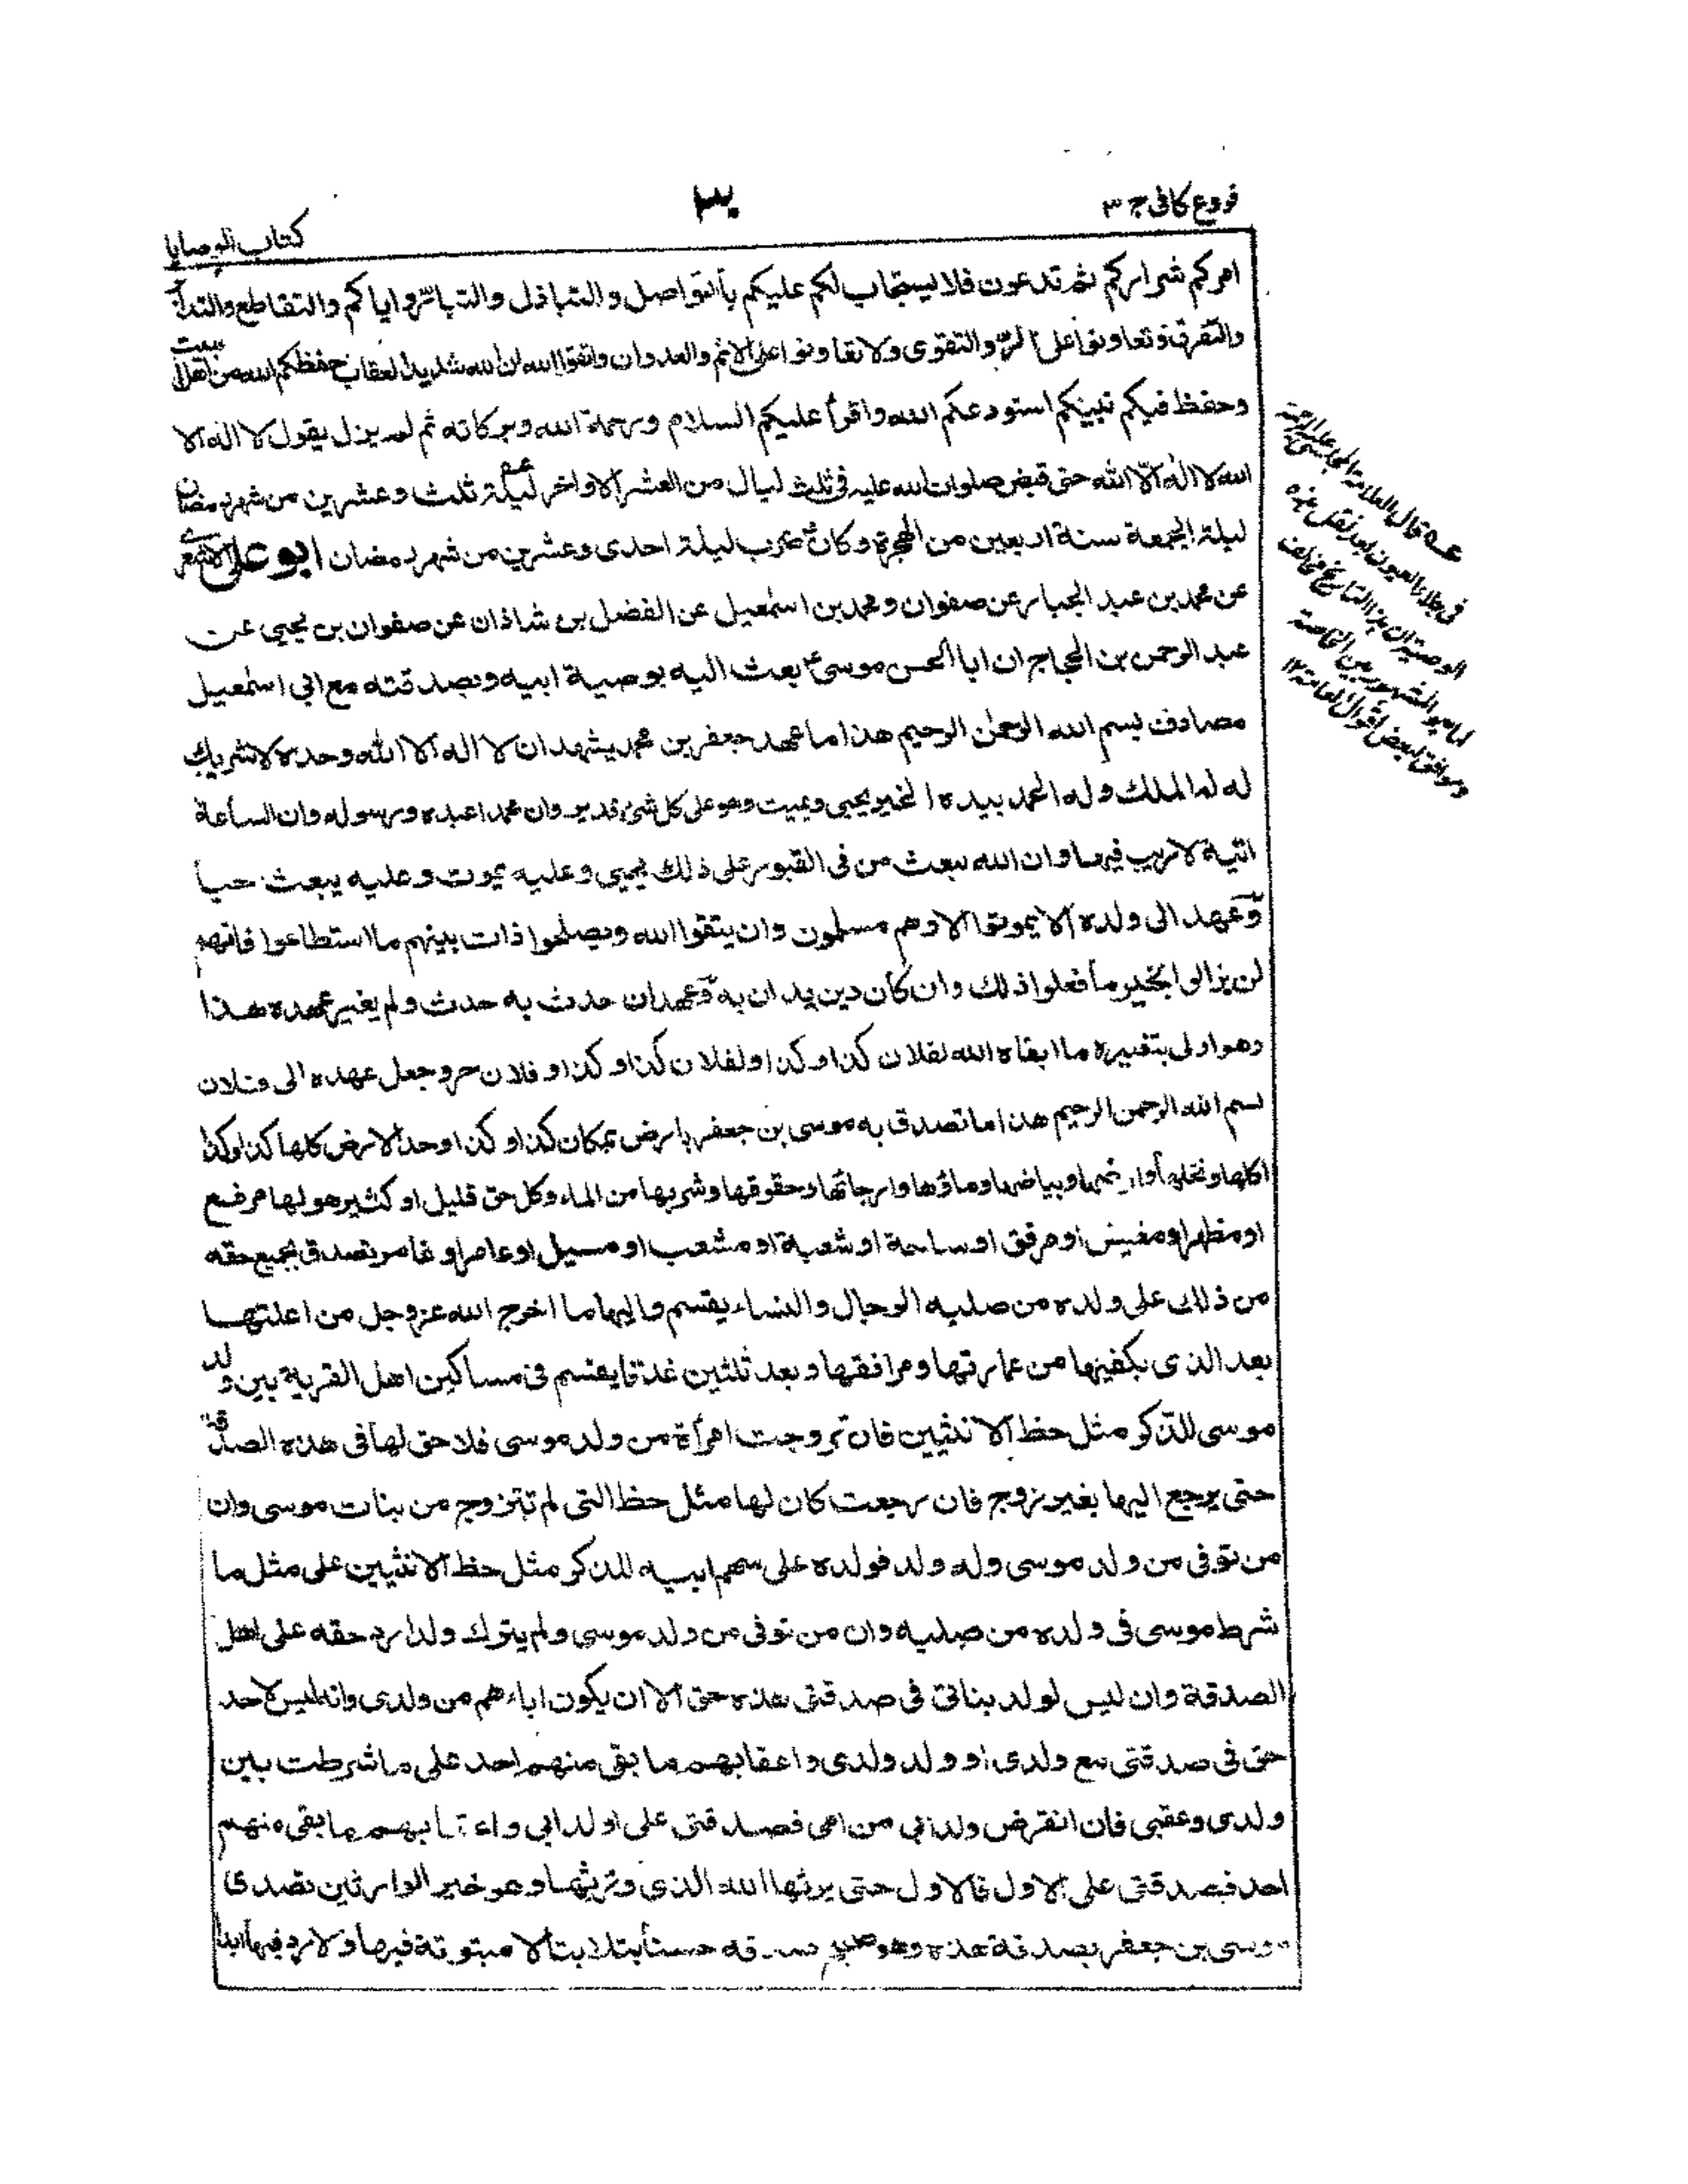 فروع كافى ج ٣
٣٠
كتاب الوصايا
امركم شراركم ثم تدعون فلا يستجاب لكم عليكم بالتواصل والتباذل والتبارّ واياكم والتقاطع والتدابر
والتفرق وتعاونوا على البرّ والتقوى ولا تعاونوا على الاثم والعدوان واتقوا الله ان الله شديد العقاب حفظكم الله من اهل بيت
وحفظ فيكم نبيكم استودعكم الله واقرأ عليكم السلام ورحمة الله وبركاته ثم لم يزل يقول لا اله الا
الله لا اله الّا الله حتى قبض صلوات الله عليه فى ثلث ليال من العشر الاواخر ليلة ثلث وعشرين من شهر رمضان
ليلة الجمعة سنة اربعين من الهجرة وكان ضرب ليلة احدى وعشرين من شهر رمضان ابو على الاشعرى
عن محمد بن عبد الجبار عن صفوان ومحمد بن اسمعيل عن الفضل بن شاذان عن صفوان بن يحيى عن
عبد الرحمن بن الحجاج ان ابا الحسن موسىؑ بعث اليه بوصية ابيه وبصدقته مع ابى اسمعيل
مصادف بسم الله الرحمٰن الرحيم هذا ما عهد جعفر بن محمد يشهد ان لا اله الا الله وحده لا شريك
له له الملك وله الحمد بيده الخير يحيى ويميت وهو على كل شئ قدير وان محمدا عبده ورسوله وان الساعة
اتية لا ريب فيها وان الله يبعث من فى القبور على ذلك يحيى وعليه يموت وعليه يبعث حيا
وعهد الى ولده الا يموتوا الا وهم مسلمون وان يتقوا الله ويصلحوا ذات بينهم ما استطاعوا فانهم
لن يزالوا بخير ما فعلوا ذلك وان كان دين يدان به وعهد ان حدث به حدث ولم يغير عهده هذا
وهو اولى بتغييره ما ابقاه الله لفلان كذا وكذا ولفلان كذا وكذا وفلان حر وجعل عهده الى فلان
بسم الله الرحمن الرحيم هذا ما تصدق به موسى بن جعفر بارض بمكان كذا وكذا وحد الارض كلها كذا وكذا
اكلها ونخلها وارضها وبياضها وماؤها وارجائها وحقوقها وشربها من الماء وكل حق قليل او كثير هو لها مرفع
او مظهر او مغيض او مرفق او ساحة او شعبة او مشعب او مسيل او عامر او غامر تصدق بجميع حقه
من ذلك على ولده من صلبه الرجال والنساء يقسم واليها ما اخرج الله عز وجل من اغلتها
بعد الذى يكفيها من عمارتها ومرافقها وبعد ثلثين عذقا يقسم فى مساكين اهل القرية بين ولد
موسى للذكر مثل حظ الانثيين فان تزوجت امرأة من ولد موسى فلا حق لها فى هذه الصدقة
حتى يرجع اليها بغير زوج فان رجعت كان لها مثل حظ التى لم تتزوج من بنات موسى وان
من توفى من ولد موسى وله ولد فولده على سهم ابيه للذكر مثل حظ الانثيين على مثل ما
شرط موسى فى ولده من صلبه وان من توفى من ولد موسى ولم يترك ولدا رد حقه على اهل
الصدقة وان ليس لولد بناتى فى صدقتى هذه حق الا ان يكون اباءهم من ولدى وانه ليس لاحد
حق فى صدقتى مع ولدى او ولد ولدى واعقابهم ما بقى منهم احد على ما شرطت بين
ولدى وعقبى فان انقرض ولد ابى من امى فصدقتى على اولد ابى واعقابهم ما بقى منهم
احد فصدقتى على الاول فالاول حتى يرثها الله الذى ورثها وهو خير الوارثين تصدق
موسى بن جعفر بصدقة هذه وهو صحيح صدقة حسنا بتلا بتا لا مبتوتة فيها ولا رد فيها ابدا
عـه قال العلامة المجلسى عليه الرحمة
فى جلاء العيون بعد نقل هذه
الوصية ان هذا التاريخ مخالف
لما هو المشهور بين الخاصة
وموافق لبعض اقوال العامة ١٢